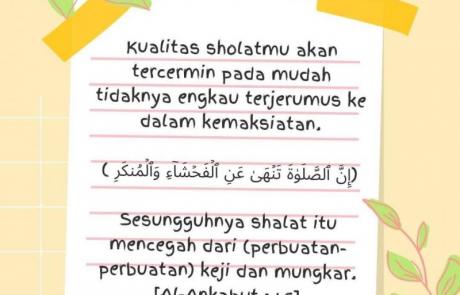 Kualitas sholatmu akan
tercermin pada mudah
tidaknya engkau terjerumus ke
dalam kemaksiatan.
(إِنَّ ٱلصَّلَوٰةَ تَنْهَىٰ عَنِ ٱلْفَحْشَآءِ وَٱلْمُنكَرِ )
Sesungguhnya shalat itu
mencegah dari (perbuatan-
perbuatan) keji dan mungkar.